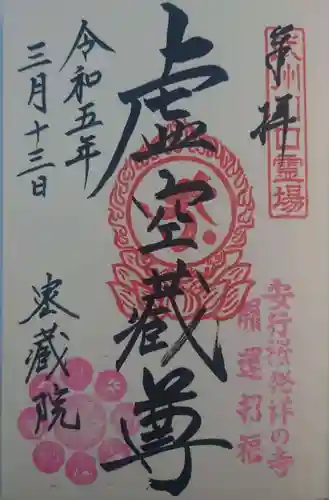 奉拝
虚空蔵尊
令和五年
三月十三日
密蔵院
霊場
安行桜発祥の寺
開運招福